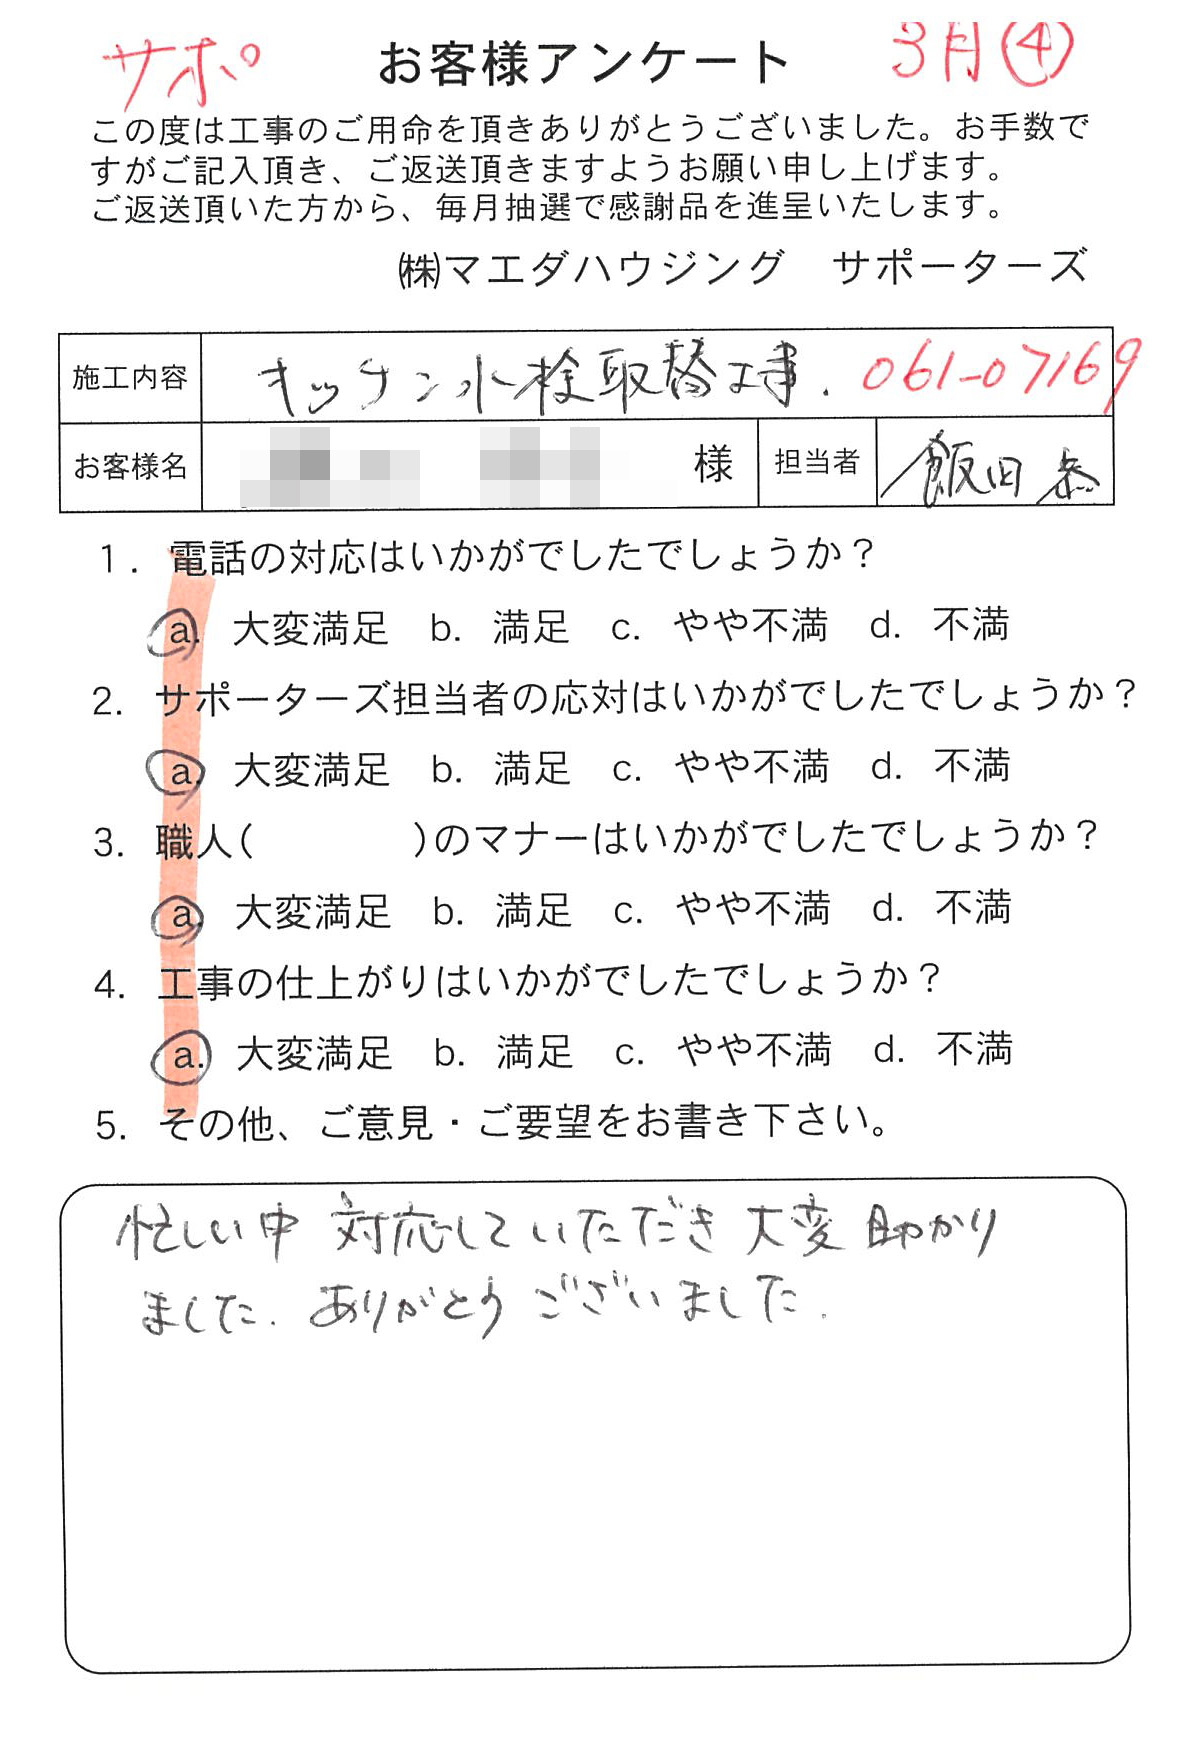 サポ お客様アンケート 3月④
この度は工事のご用命を頂きありがとうございました。お手数で
すがご記入頂き、ご返送頂きますようお願い申し上げます。
ご返送頂いた方から、毎月抽選で感謝品を進呈いたします。
㈱マエダハウジング サポーターズ
施工内容 キッチン水栓取替工事. 061-07169
お客様名 様 担当者 飯田 恭
1. 電話の対応はいかがでしたでしょうか？
a. 大変満足 b. 満足 c. やや不満 d. 不満
2. サポーターズ担当者の応対はいかがでしたでしょうか？
a. 大変満足 b. 満足 c. やや不満 d. 不満
3. 職人( )のマナーはいかがでしたでしょうか？
a. 大変満足 b. 満足 c. やや不満 d. 不満
4. 工事の仕上がりはいかがでしたでしょうか？
a. 大変満足 b. 満足 c. やや不満 d. 不満
5. その他、ご意見・ご要望をお書き下さい。
忙しい中 対応していただき 大変 助かり
ました. ありがとう ございました.